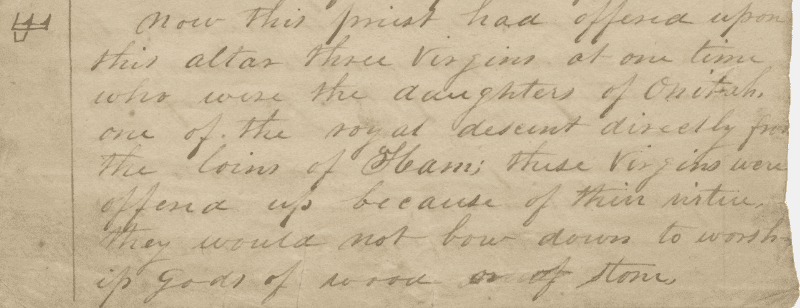 now this priest had offered upon
this altar three virgins at one time
who were the daughters of Onitah,
one of the royal descent directly from
the loins of Ham; these virgins were
offered up because of their virtue,
they would not bow down to worsh-
ip gods of wood or of stone,